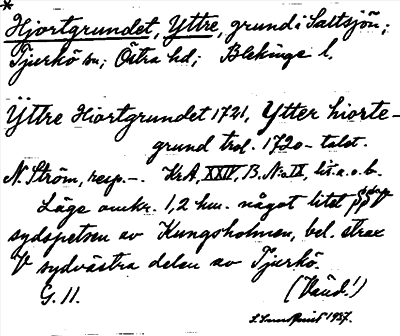 *
Hjortgrundet, Yttre, grund i Saltsjön;
Tjurkö sn; Östra hd; Blekinge l.
Yttre Hiortgrundet 1721, Ytter hiorte-
grund trol. 1720-talet.
N. Ström, resp. -. KrA, XXIV, B. No IX, lit. a. o. b.
Läge omkr. 1,2 km. något litet V
sydspetsen av Kungsholmen, bel. strax
V sydvästra delen av Tjurkö.
G. 11. (Vänd!)
1937.